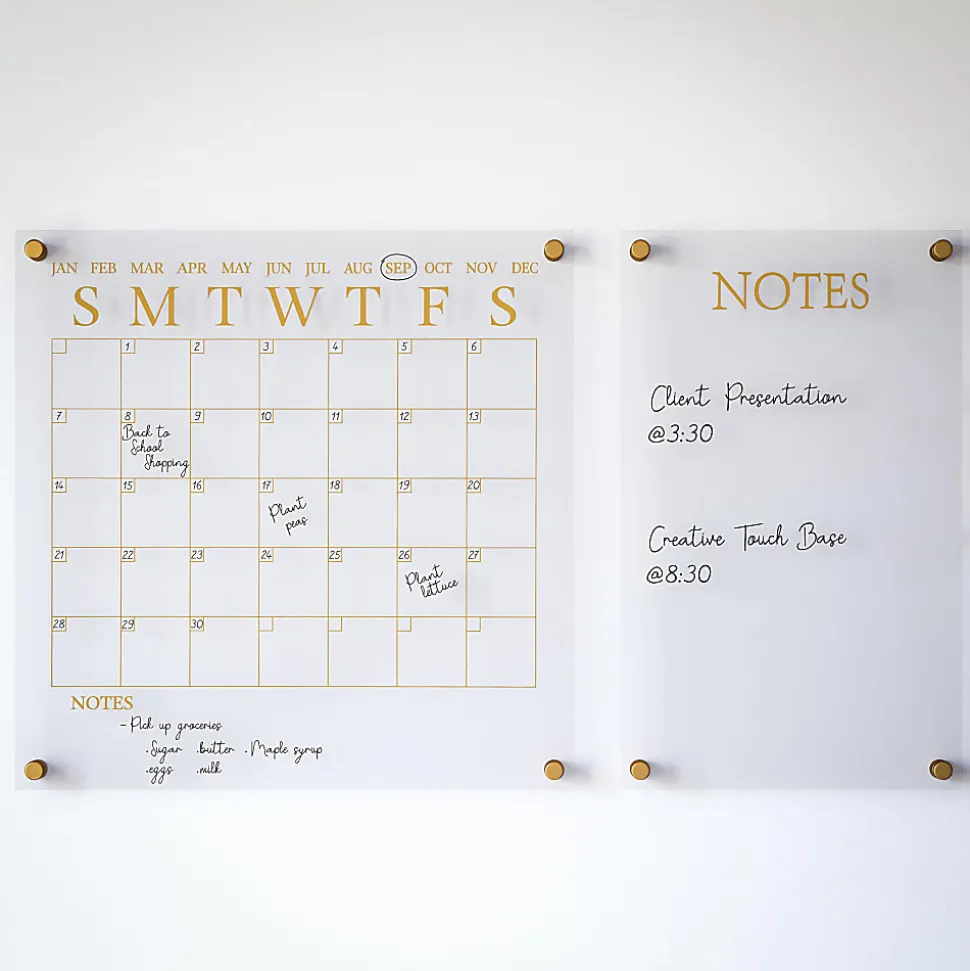 JAN FEB MAR APR MAY JUN JUL AUG SEP OCT NOV DEC
S M T W T F S
1 2 3 4 5 6
7 8 9 10 11 12 13
Back to
School
Shopping
14 15 16 17 18 19 20
Plant
peas
21 22 23 24 25 26 27
Plant
lettuce
28 29 30
NOTES
- Pick up groceries
.Sugar .butter .Maple syrup
.eggs .milk
NOTES
Client Presentation
@3:30
Creative Touch Base
@8:30